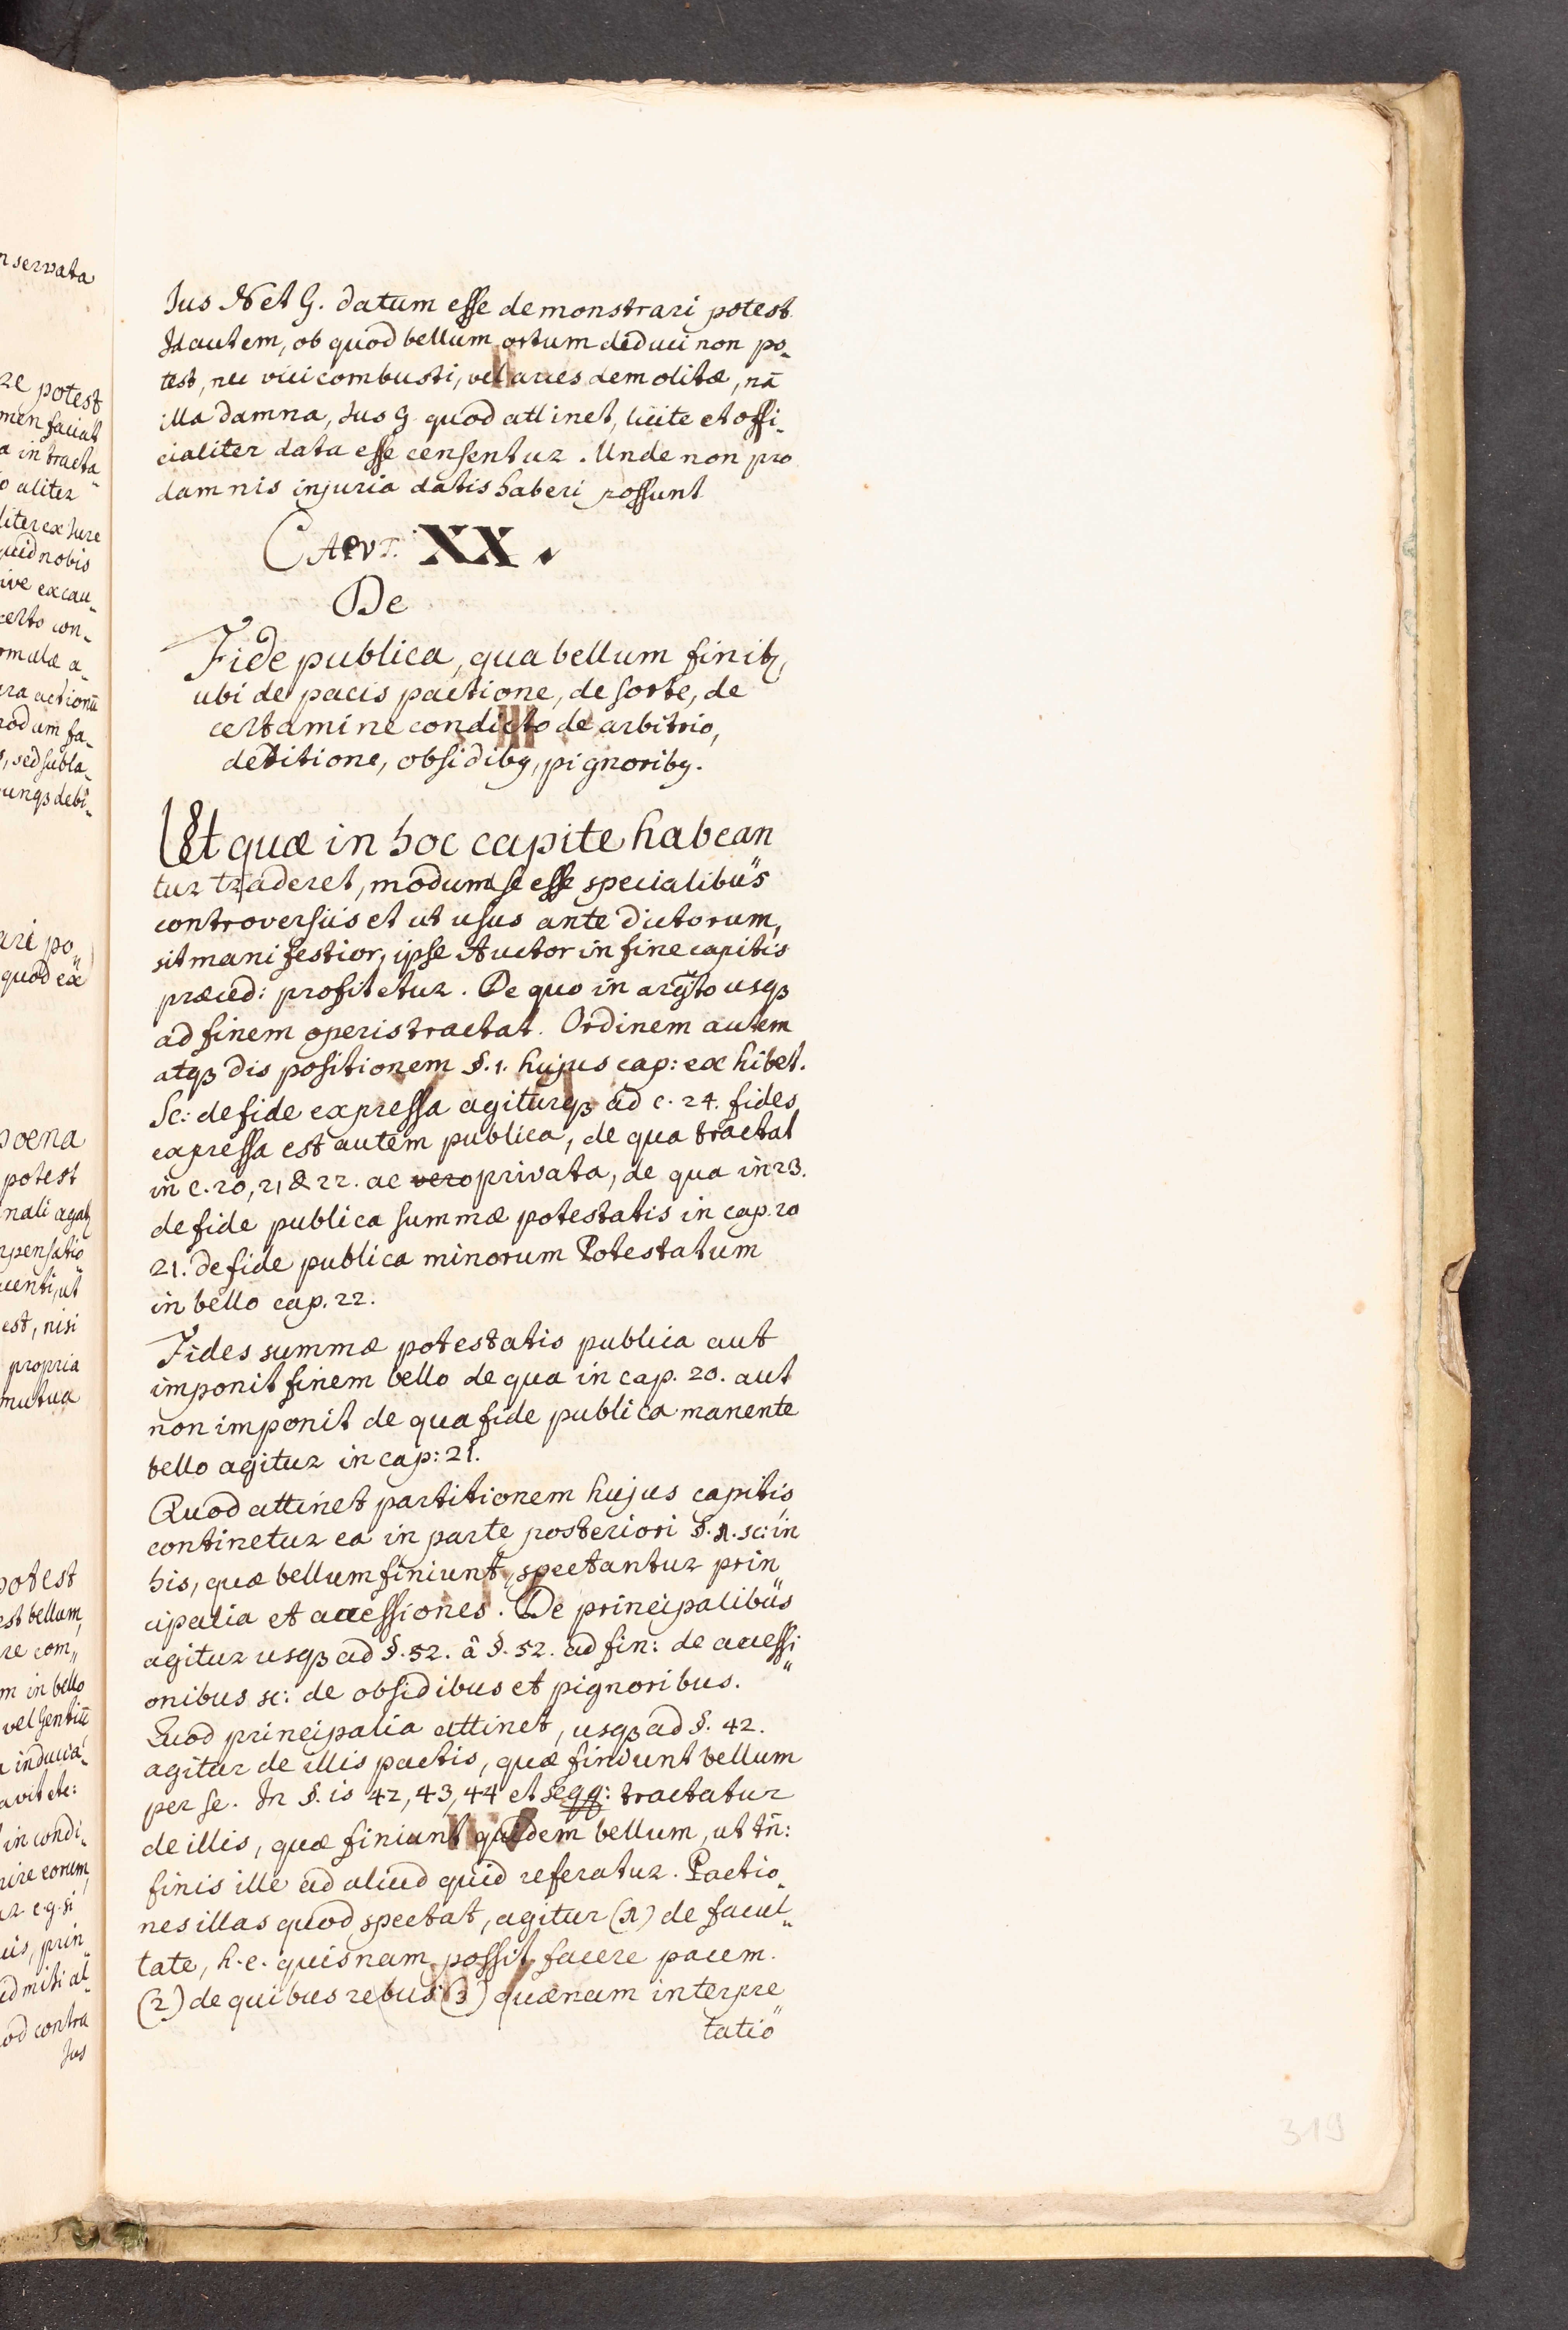 Jus N et G. datum esse demonstrari potest.
Id autem, ob quod bellum ortum deduci non po-
test, nec vici combusti, vel arces demolitæ, nā
illa damna, Jus G. quod attinet, licite et offi-
cialiter data esse censentur. Unde non pro
damnis injuria datis haberi possunt
CAPVT. XX.
De
Fide publica, qua bellum finitz,
ubi de pacis pactione, de sorte, de
certamine condicto de arbitrio,
deditione, obsidibq, pignoribq.
Et quæ in hoc capite habean
tur traderet, modum se esse specialibus
controversiis et ut usus ante dictorum,
sit manifestior, ipse Auctor in fine capitis
præced: profitetur. De quo in argto usqz
ad finem operis tractat. Ordinem autem
atqz dispositionem §. 1. hujus cap: exhibet.
Sc: de fide expressa agiturqz ad c. 24. fides
expressa est autem publica, de qua tractat
in c. 20, 21 & 22. ac vero privata, de qua in 23.
de fide publica summæ potestatis in cap. 20
21. de fide publica minorum Potestatum
in bello cap. 22.
Fides summæ potestatis publica aut
imponit finem bello de qua in cap. 20. aut
non imponit de qua fide publica manente
bello agitur in cap: 21.
Quod attinet partitionem hujus capitis,
continetur ea in parte posteriori §. 1. sc: in
his, quæ bellum finiunt, spectantur prin
cipalia et accessiones. De principalibus
agitur usqz ad §. 52. â §. 52. ad fin: de accessi
onibus sc: de obsidibus et pignoribus.
Quod principalia attinet, usqz ad §. 42.
agitur de illis pactis, quæ finiunt bellum
per se. In §. is 42, 43, 44 et seqq: tractatur
de illis, quæ finiunt quidem bellum, ut tn̄:
finis ille ad aliud quid referatur. Pactio-
nes illas quod spectat, agitur (1) de facul-
tate, h. e. quisnam possit facere pacem.
(2) de quibus rebus (3) quænam interpre
tatio
319